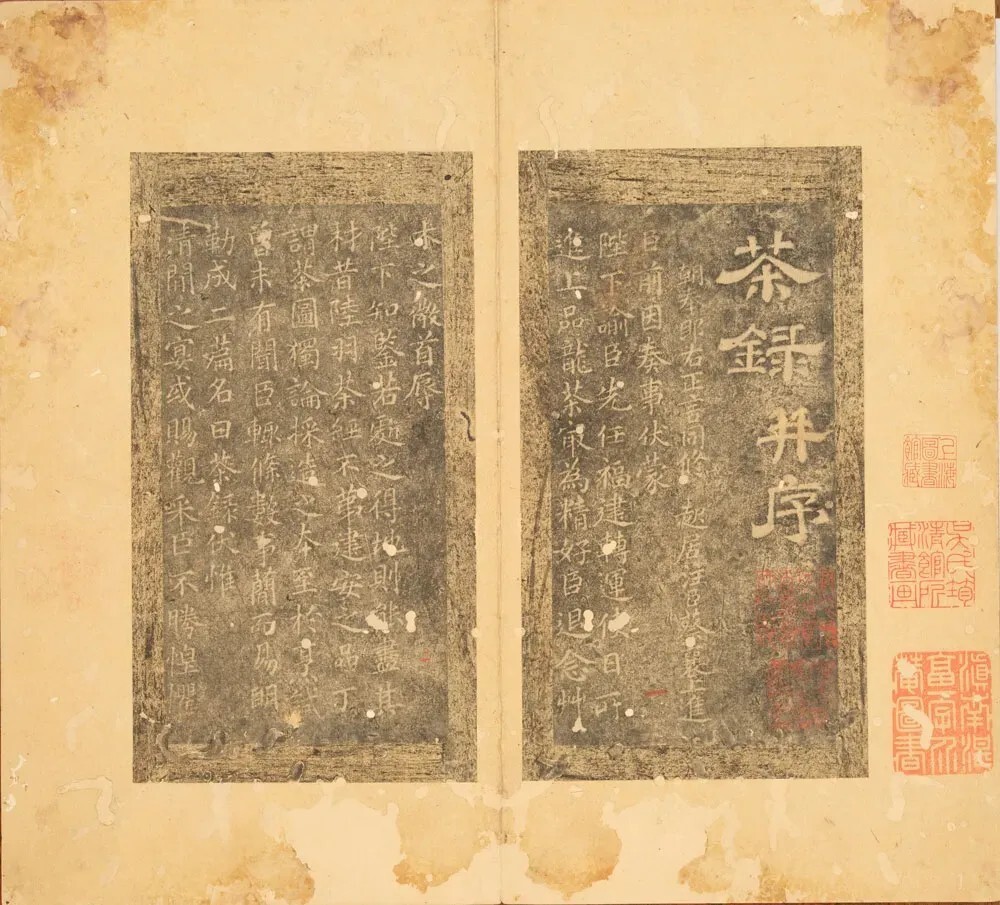 茶録并序
朝奉郎右正言同修起居注臣蔡襄上進
臣前因奏事伏蒙
陛下諭臣先任福建轉運使日所
進上品龍茶㝡為精好臣退念艸
木之微首辱
陛下知鑒若處之得地則能盡其
材昔陸羽茶經不第建安之品丁
謂茶圖獨論採造之本至於烹試
曾未有聞臣輒條數事簡而易明
勒成二篇名曰茶録伏惟
清閒之宴或賜觀采臣不勝惶懼
上海圖書館藏